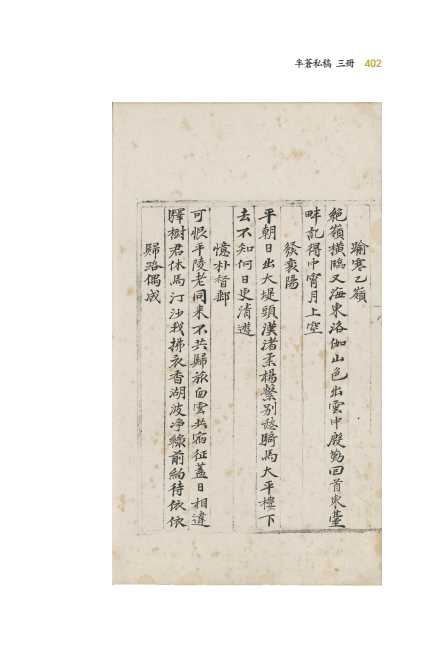 半蒼私稿 三冊 402
踰寒乞嶺
絶嶺横臨又海東洛伽山色出雲中殷勤回首東臺
畔記得中宵月上空
發襄陽
平朝日出大堤頭漢渚柔楊繫別愁騎馬大平樓下
去不知何日更清遊
憶朴督郵
可恨平陵老同来不共歸旅白雲共宿征蓋日相違
驛樹君休馬汀沙我拂衣香湖波凈綠前約待依依
歸路偶成